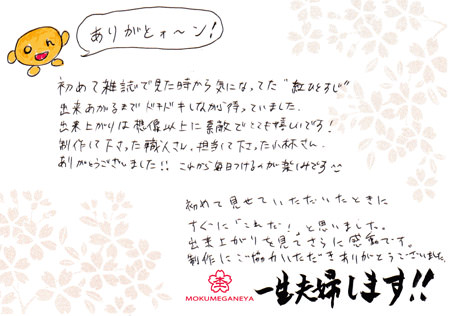 ありがとォ〜ン！
初めて雑誌で見た時から気になってた"紅ひとすじ"
出来あがるまでドキドキしながら待っていました。
出来上がりは想像以上に素敵でとても嬉しいです！
制作して下さった職人さん、担当して下さった小林さん、
ありがとうございました!! これから毎日つけるのが楽しみです
初めて見せていただいたときに
すぐに「これだ！」と思いました。
出来上がりを見てさらに感動です。
制作にご協力いただきありがとうございました。
MOKUMEGANEYA
一生夫婦します!!